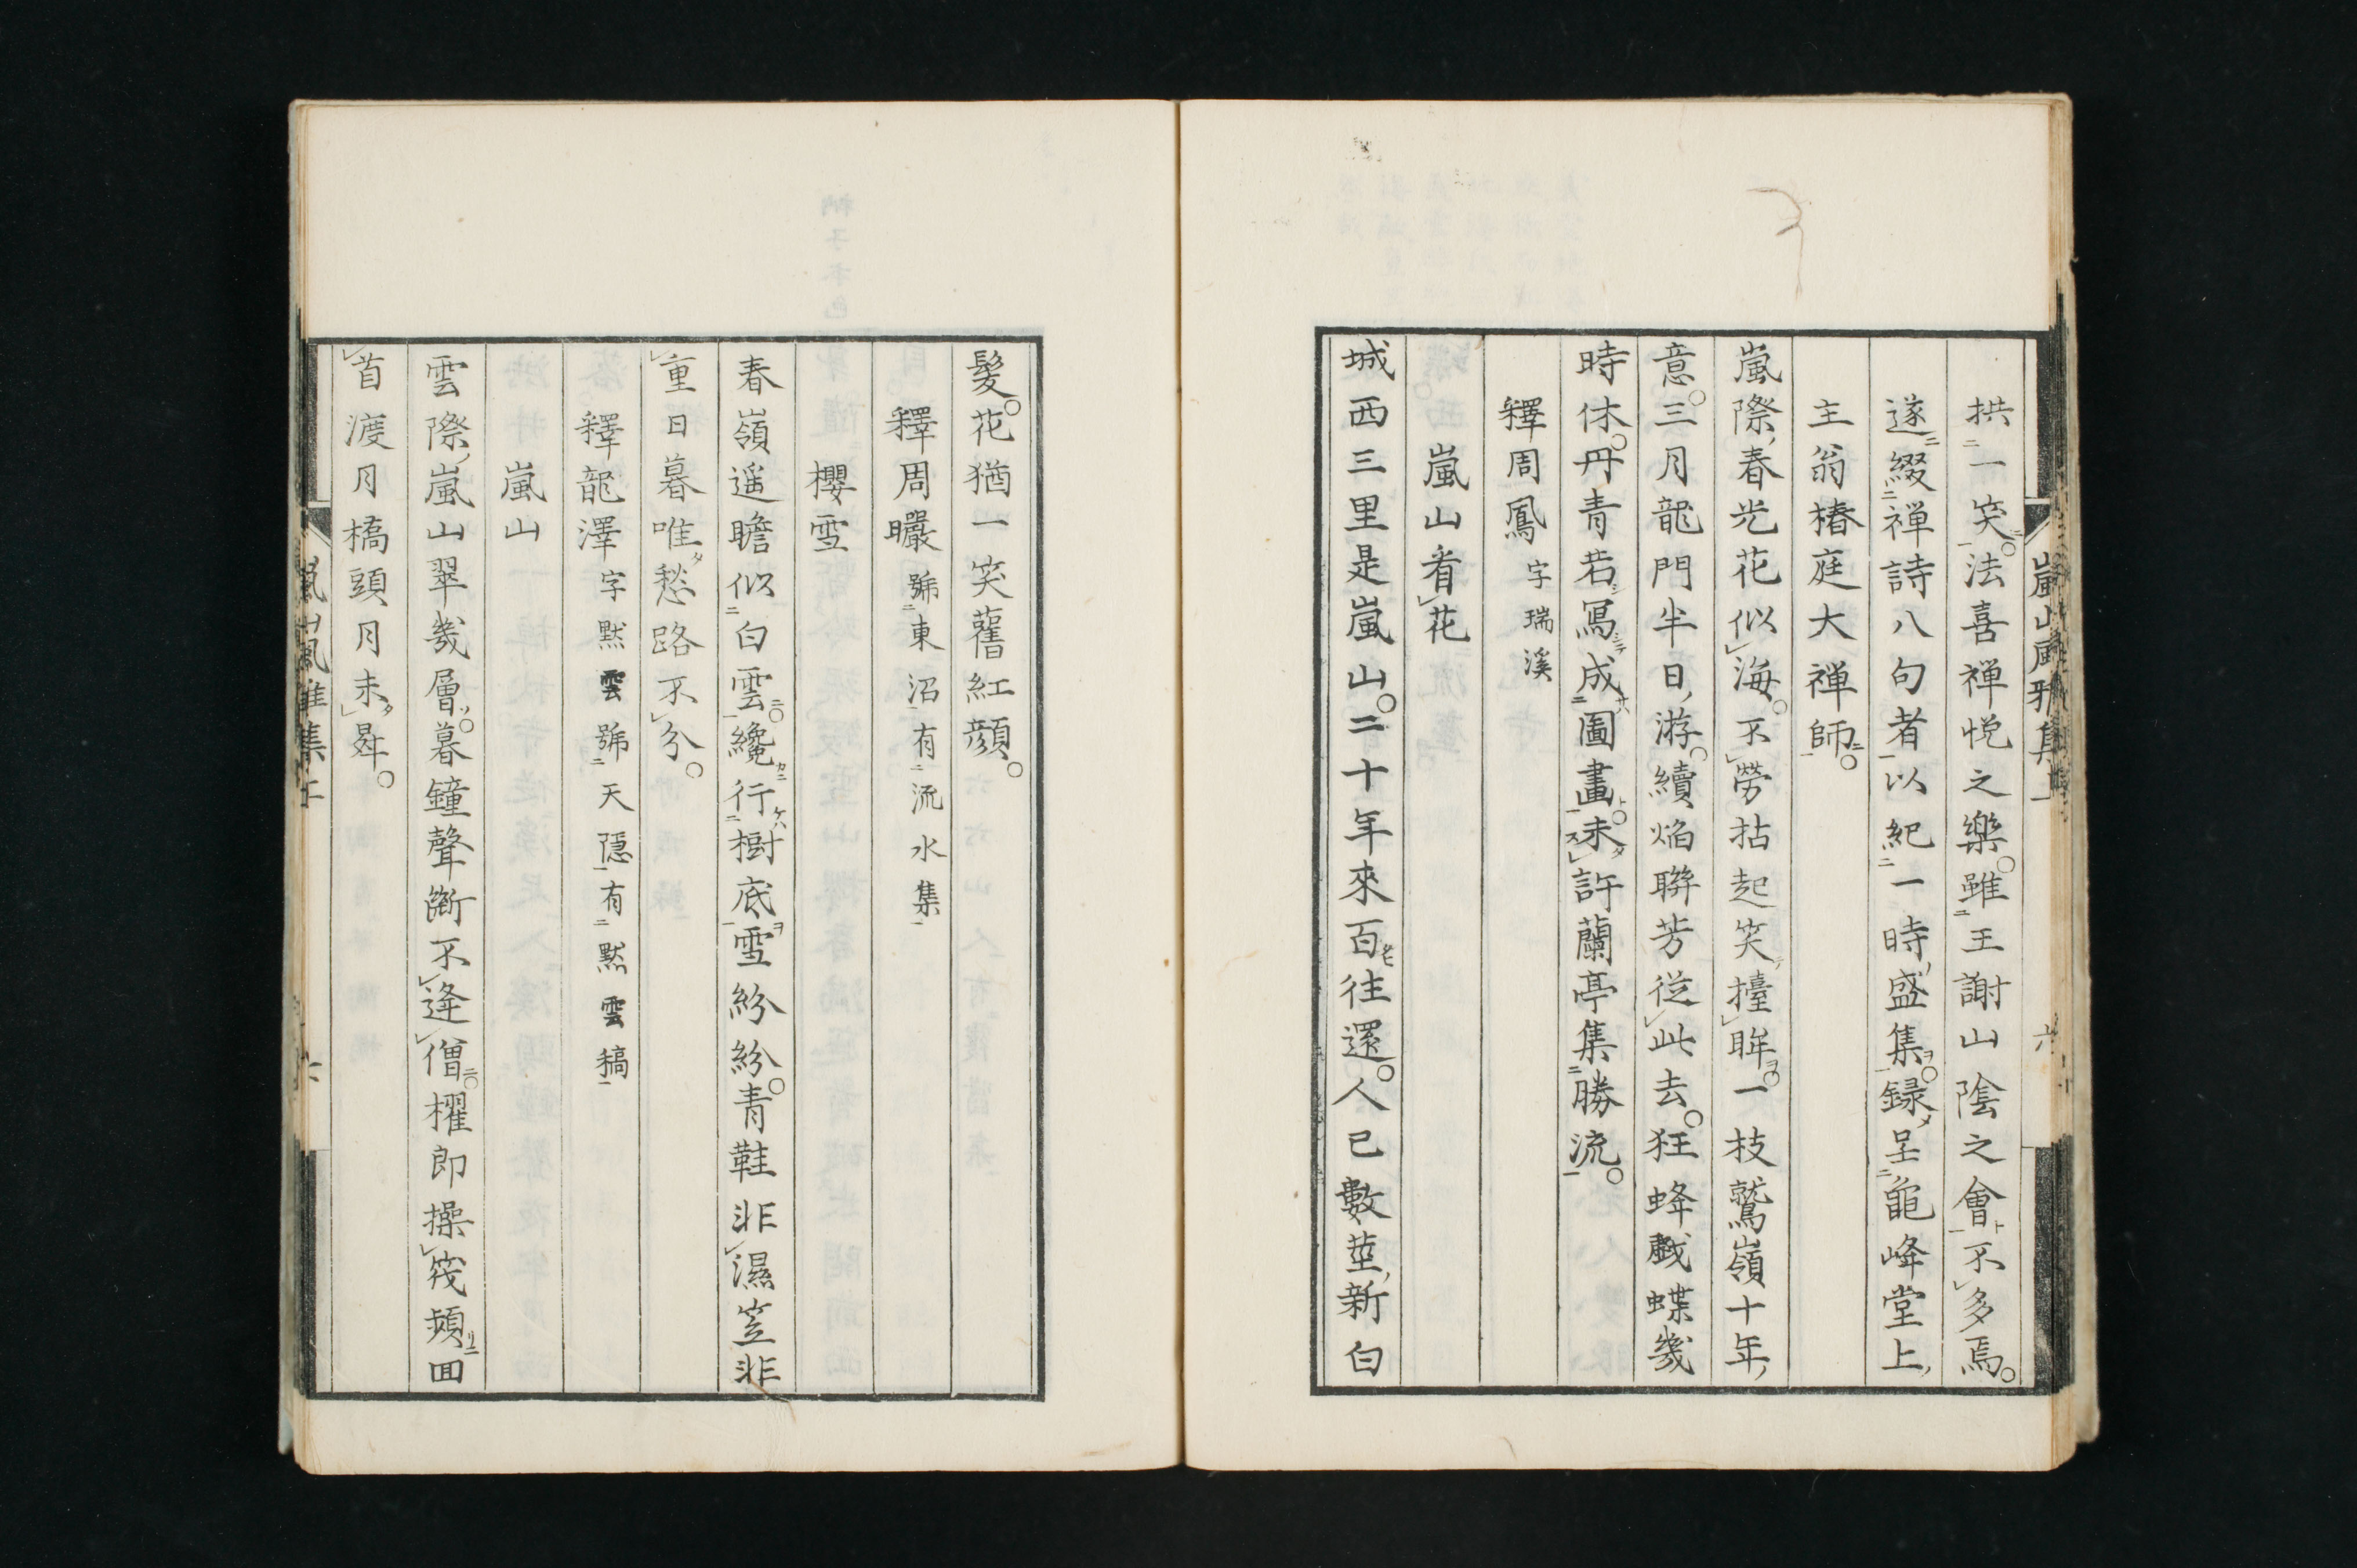 嵐山風雅集
六
拱一笑。法喜禅悦之樂。雖王謝山陰之會不多焉。
遂綴禅詩八句者以紀一時盛集。録呈龜峰堂上
主翁椿庭大禅師。
嵐際春光花似海。不勞拈起笑擡眸。一枝鷲嶺十年
意。三月龍門半日游。續焔聯芳從此去。狂蜂戯蝶幾
時休。丹青若寫成圖畫。未許蘭亭集勝流。
釋周鳳 字瑞溪
嵐山看花
城西三里是嵐山。二十年來百往還。人已數莖新白
髮。花猶一笑舊紅顔。
釋周曮 號東沼有流水集
櫻雪
春嶺遥瞻似白雲。纔行樹底雪紛紛。青鞋非濕笠非
重日暮唯愁路不分。
釋龍澤 字黙雲號天隱有黙雲稿
嵐山
雲際嵐山翠幾層。暮鐘聲斷不逢僧。櫂郎操筏頻回
首渡月橋頭月未昇。
嵐山風雅集